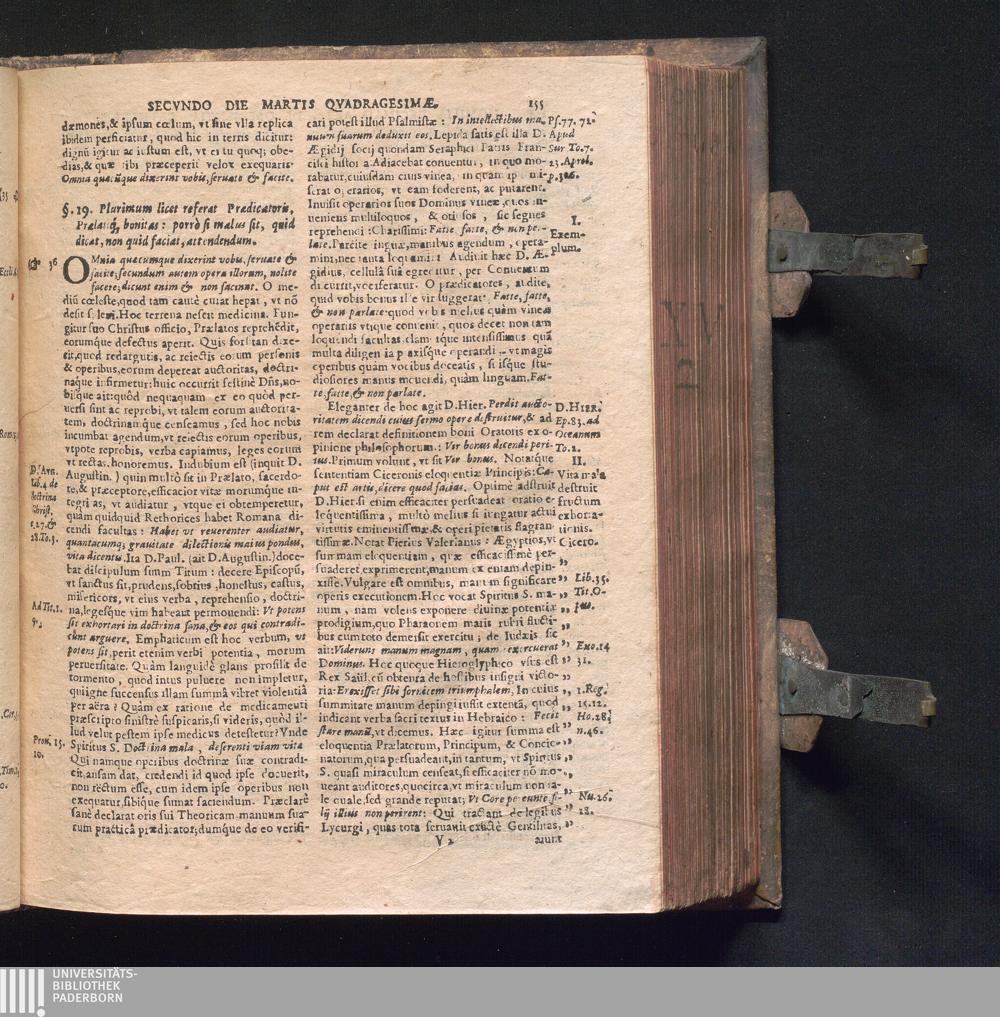 SECVNDO DIE MARTIS QVADRAGESIMÆ.
155
dæmones,& ipsum cœlum, vt sine vlla replica
ibidem perficiatur, quod hic in terris dicitur:
dignũ igitur ac iustum est, vt ei tu quoq; obe-
dias,& quæ tibi præceperit velox exequaris.
Omnia quæcũque dixerint vobis, seruate & facite.
§. 19. Plurimum licet referat Prædicatoris,
Prælatiq́, bonitas: porrò si malus sit, quid
dicat, non quid faciat, attendendum.
36
OMnia quæcumque dixerint vobis, seruate &
facite; secundum autem opera illorum, nolite
facere; dicunt enim & non faciunt. O me-
diũ cœleste, quod tam cautè curat hepar, vt nõ
desit spleni. Hoc terrena nescit medicina. Fun-
gitur suo Christus officio, Prælatos reprehẽdit,
eorumque defectus aperit. Quis forsitan dixe-
rit, quod redargutis, ac reiectis eorum personis
& operibus, eorum depereat auctoritas, doctri-
naque infirmetur: huic occurrit festinè Dñs, no-
bisque ait: quòd nequaquam ex eo quòd per-
uersi sint ac reprobi, vt talem eorum auctorita-
tem, doctrinamque censeamus, sed hoc nobis
incumbat agendum, vt reiectis eorum operibus,
vtpote reprobis, verba capiamus, leges eorum
vt rectas. honoremus. Indubium est (inquit D.
Augustin.) quin multò sit in Prælato, sacerdo-
te, & præceptore, efficacior vitæ morumque in-
tegritas, vt audiatur, vtque ei obtemperetur,
quàm quidquid Rethorices habet Romana di-
cendi facultas: Habet vt reuerenter audiatur,
quantacumq; grauitate dilectionis maius pondus,
vita dicentis. Ita D. Paul. (ait D. Augustin.) doce-
bat discipulum suum Titum: decere Episcopũ,
vt sanctus sit, prudens, sobrius, honestus, castus,
misericors, vt eius verba, reprehensio, doctri-
na, legesque vim habeant permouendi: Vt potens
sit exhortari in doctrina sana, & eos qui contradi-
cunt arguere. Emphaticum est hoc verbum, vt
potens sit, perit etenim verbi potentia, morum
peruersitate. Quàm languidè glans prosilit de
tormento, quod intus puluere non impletur,
quiigne succensus illam summâ vibret violentiâ
per aëra? Quàm ex ratione de medicamenti
præscripto sinistrè suspicaris, si videris, quòd il-
lud velut pestem ipse medicus detestetur? Vnde
Spiritus S. Doctrina mala, deserenti viam vita
Qui namque operibus doctrinæ suæ contradi-
cit, ansam dat, credendi id quod ipse docuerit,
non rectum esse, cum idem ipse operibus non
exequatur, sibique sumat faciendum. Præclarè
sanè declarat oris sui Theoricam manum sua-
rum practicâ prædicator; dumque de eo verifi-
D. Aug.
lib. 4. de
doctrina
Christ.
c. 27. &
28. To. 3.
Ad Tit. 1.
9.
Prou. 15.
10.
cari potest illud Psalmistæ: In intellectibus ma-
nuum suarum deduxit eos. Lepida satis est illa D.
Ægidij socij quondam Seraphici Patris Fran-
cisci historia. Adiacebat conuentui, in quo mo-
rabatur, cuiusdam ciuis vinea, in quam ipse mi-
serat operarios, vt eam foderent, ac putarent.
Inuisit operarios suos Dominus vineæ, quos in-
ueniens multiloquos, & otiosos, sic segnes
reprehendit: Charissimi: Fatte, fatte, & non par-
late. Parcite linguæ, manibus agendum, opera-
mini, nec tanta loquamini. Audiuit hæc D. Æ-
gidius, cellulâ suâ egreditur, per Conuentum
discurrit, vociferatur. O prædicatores, audite,
quid vobis bonus ille vir suggerat: Fatte, fatte,
& non parlate: quod vobis melius quàm vineæ
operariis vtique conuenit, quos decet non tam
loquendi facultas, clamorque intensissimus quã
multa diligentia praxisque operandi: vt magis
operibus quàm vocibus doceatis, sitisque stu-
diosiores manus mouendi, quàm linguam. Fat-
te, fatte, & non parlate.
Eleganter de hoc agit D. Hier. Perdit aucto-
ritatem dicendi cuius sermo opere destruitur, & ad
rem declarat definitionem boni Oratoris ex o-
pinione philosophorum: Vir bonus dicendi peri-
tus. Primum volunt, vt sit Vir bonus. Notatque
sententiam Ciceronis eloquentiæ Principis: Ca-
put est artis, dicere quod facias. Optimè adstruit
D. Hier. si enim efficaciter persuadeat oratio e-
loquentissima, multò melius si iungatur actui
virtutis eminentissimæ, & operi pietatis flagran-
tissimæ. Notat Pierius Valerianus: Ægyptios, vt
summam eloquentiam, quæ efficacissimè per-
suaderet, exprimerent, manum ex eniam depin-
xisse. Vulgare est omnibus, manum significare
operis executionem. Hoc vocat Spiritus S. ma-
num, nam volens exponere diuinæ potentiæ
prodigium, quo Pharaonem maris rubri flucti-
bus cum toto demersit exercitu; de Iudæis sic
ait: Viderunt manum magnam, quam exercuerat
Dominus. Hoc quoque Hieroglyphico vsus est
Rex Saül, cũ obtenta de hostibus insigni victo-
ria: Erexisset sibi fornicem triumphalem, In cuius
summitate manum depingi iussit extentã, quod
indicant verba sacri textus in Hebraico: Fecit
stare manũ, vt dicemus. Hæc igitur summa est
eloquentia Prælatorum, Principum, & Concio-
natorum, qua persuadeant, in tantum, vt Spiritus
S. quasi miraculum censeat, si efficaciter nõ mo-
ueant auditores, quocirca, vt miraculum non ta-
le quale, sed grande reputat; Vt Core pereunte, fi-
lij illius non perirent: Qui tractant de legibus
Lycurgi, quas tota seruauit exactè Gentilitas,
V 2
aiunt
Ps. 77. 72.
Apud
Sur To. 7.
23. April.
p. 306.
I.
Exem-
plum.
D. HIER.
Ep. 83. ad
Oceanum
To. 2.
II.
Vita mala
destruit
fructum
exhorta-
tionis.
Cicero.
Lib. 35.
Tit. O-
pus.
Exo. 14
31.
1. Reg.
15. 12.
Ho. 28.
n. 46.
Nu. 26.
18.
UNIVERSITÄTS-
BIBLIOTHEK
PADERBORN